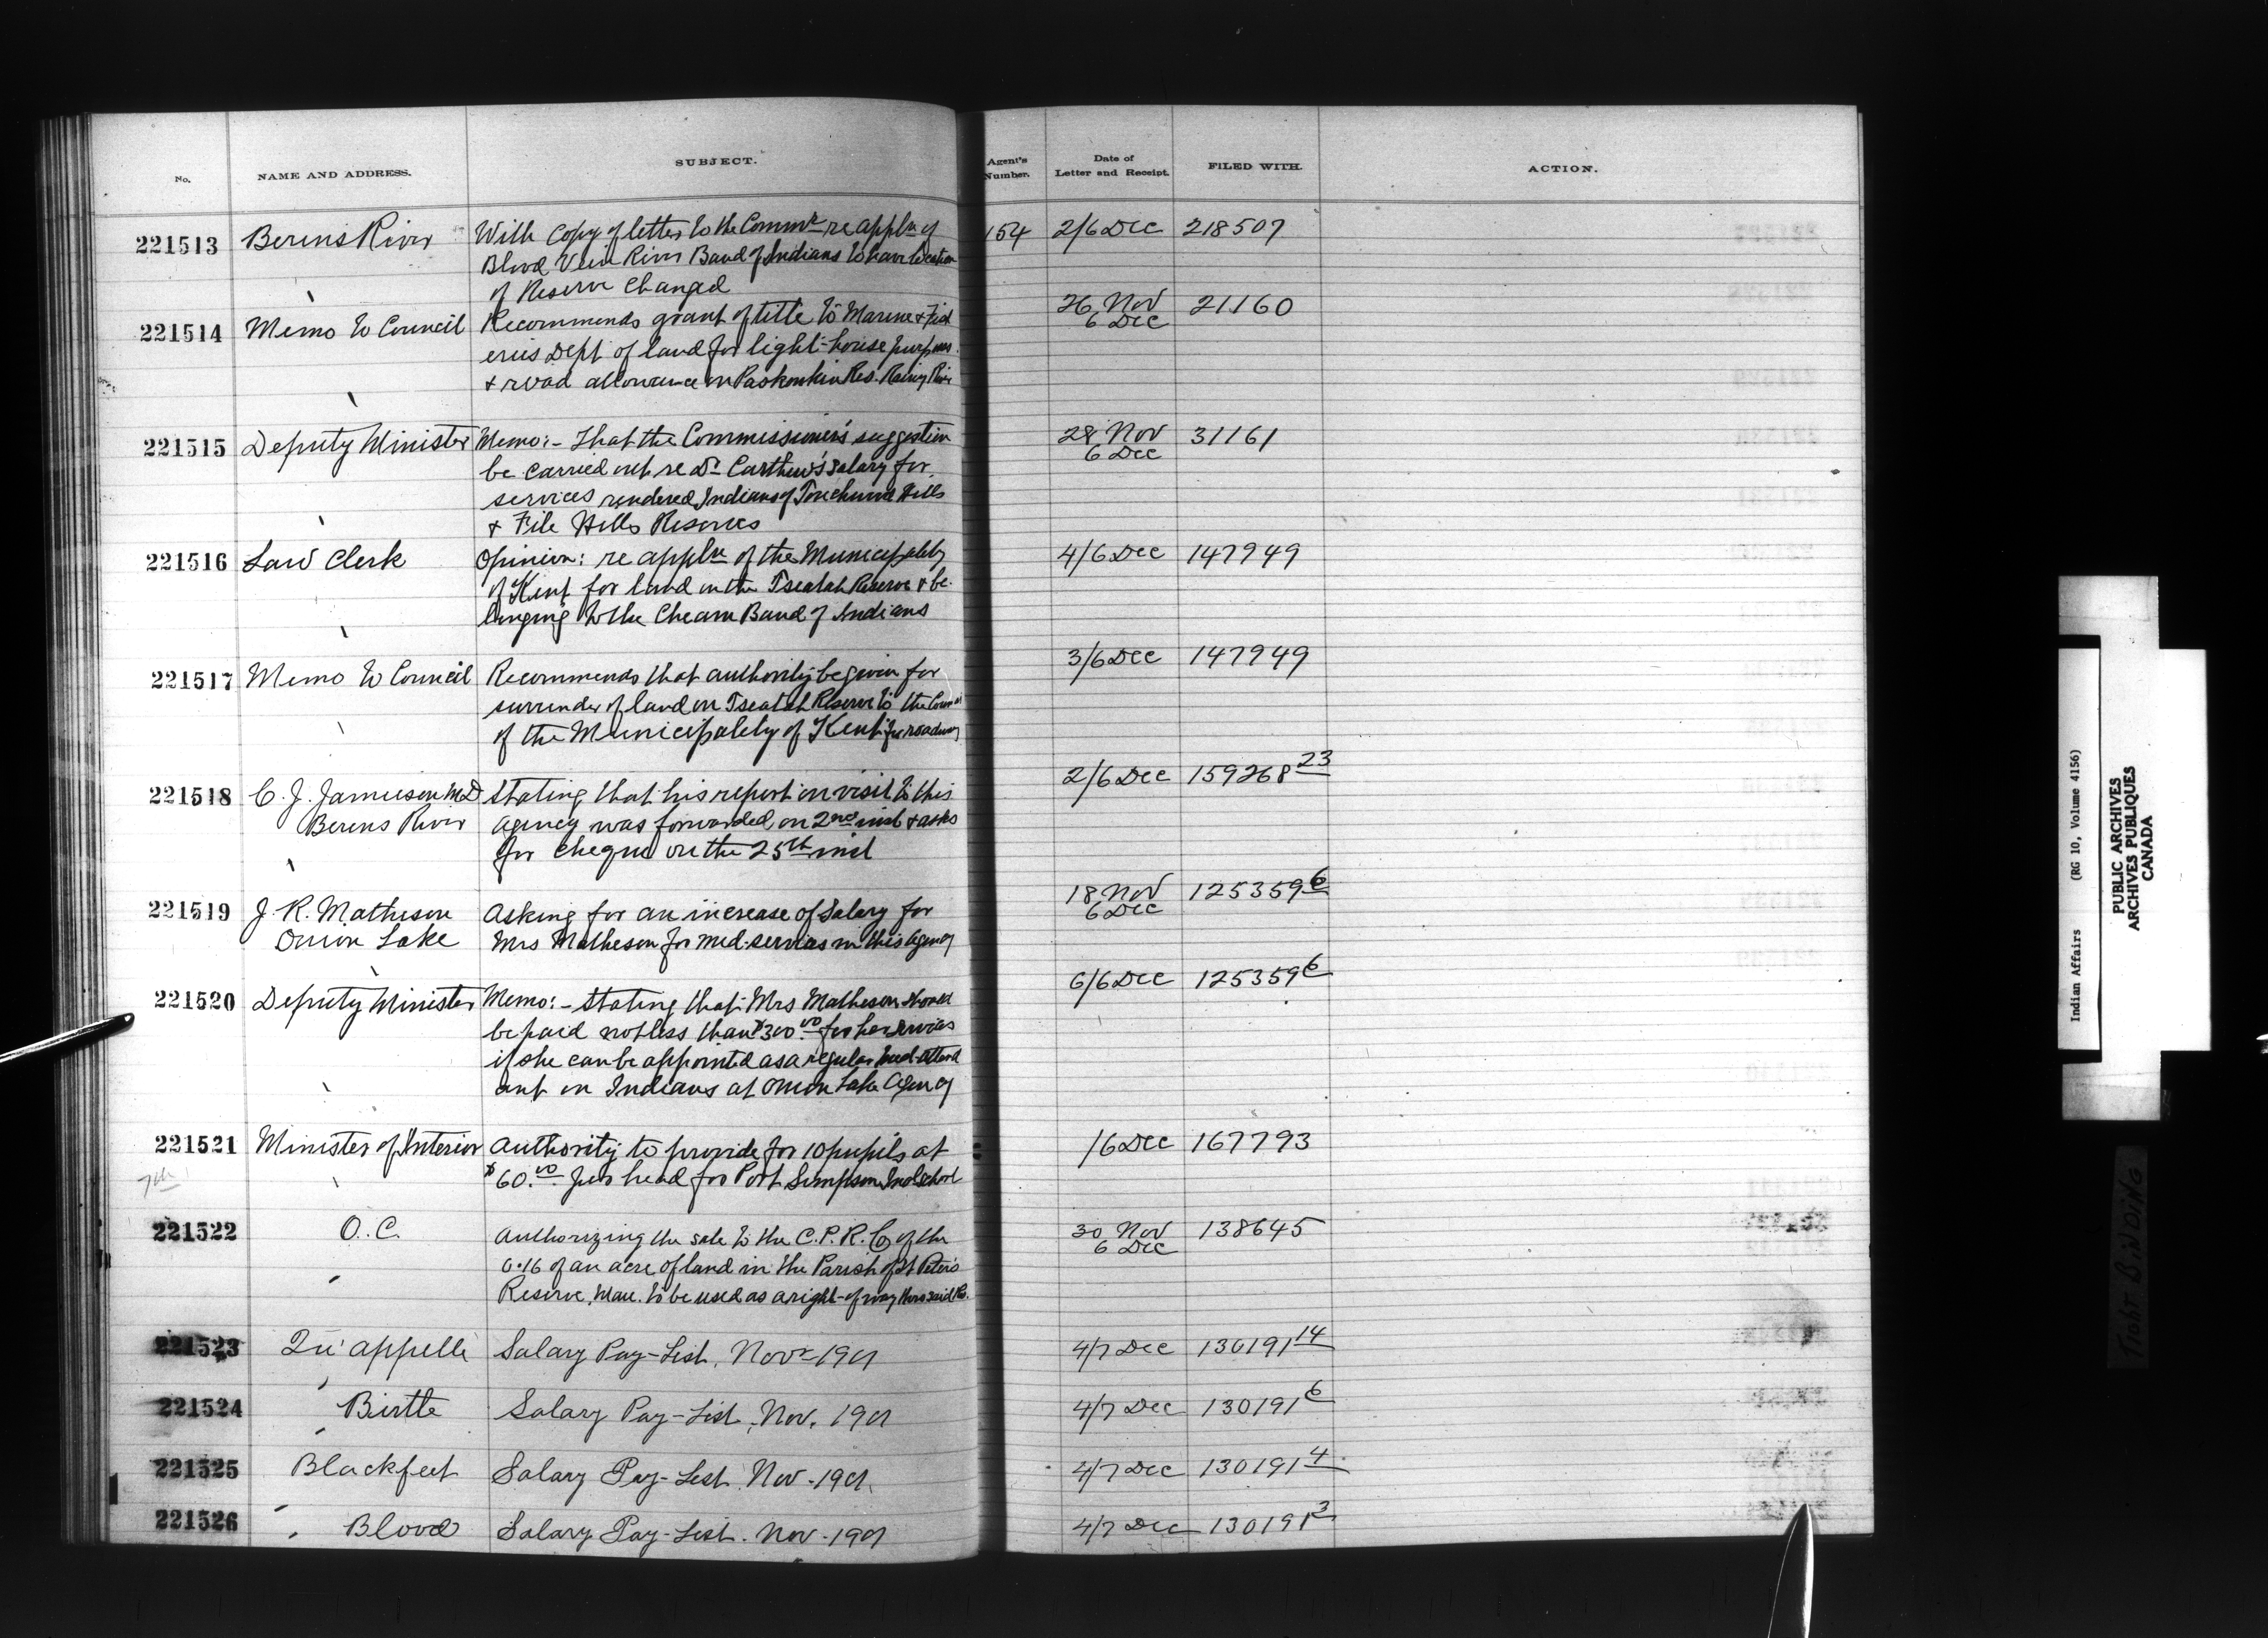 No. NAME AND ADDRESS. SUBJECT. Agent's Number. Date of Letter and Receipt. FILED WITH. ACTION.
221513 Berens River With Copy of letter to the Commr re appln of 154 2/6 Dec 218507
Blood Vein River Band of Indians to have location
of Reserve Changed
221514 Memo to Council Recommends grant of title to Marine & Fish 26 Nov 21160
eries Dept of land for light-house purposes 6 Dec
& road allowance on Res. Rainy River
221515 Deputy Minister Memo:- That the Commissioner's suggestion 28 Nov 31161
be carried out re Dr Carthew's salary for 6 Dec
services rendered Indians of Touchwood Hills
& File Hills Reserves
221516 Law Clerk Opinion: re appln of the Municipality 4/6 Dec 147949
of Kent for land on the Tseatah Reserve & be-
longing to the Cheam Band of Indians
221517 Memo to Council Recommends that authority be given for 3/6 Dec 147949
surrender of land on Tseatah Reserve to the
of the Municipality of Kent for roadway
221518 C. J. Jamieson M.D. Stating that his report on visit to this 2/6 Dec 159268 23
Berens River agency was forwarded on 2nd inst & asks
for cheque on the 25th inst
221519 J. R. Matheson Asking for an increase of Salary for 18 Nov 125359 6
Onion Lake Mrs Matheson for med. services in this Agency 6 Dec
221520 Deputy Minister Memo:- Stating that Mrs Matheson should 6/6 Dec 125359 6
be paid not less than $300.00 for her services
if she can be appointed as a regular med. attend
ant on Indians at Onion Lake Agency
221521 Minister of Interior Authority to provide for 10 pupils at /6 Dec 167793
7th $60.00 per head for Port Simpson Ind School
221522 O.C. Authorizing the sale to the C.P.R. Co of the 30 Nov 138645
0.16 of an acre of land in the Parish of St Peter's 6 Dec
Reserve, Man. to be used as a right-of-way thro said Res.
221523 Qu'appelle Salary Pay-List, Novr 1901 4/7 Dec 130191 14
221524 Birtle Salary Pay-List, Nov. 1901 4/7 Dec 130191 6
221525 Blackfeet Salary Pay-List Nov. 1901. 4/7 Dec 130191 4
221526 Blood Salary Pay-List. Nov. 1901 4/7 Dec 130191 3
Indian Affairs (RG 10, Volume 4156)
PUBLIC ARCHIVES
ARCHIVES PUBLIQUES
CANADA
TIGHT BINDING